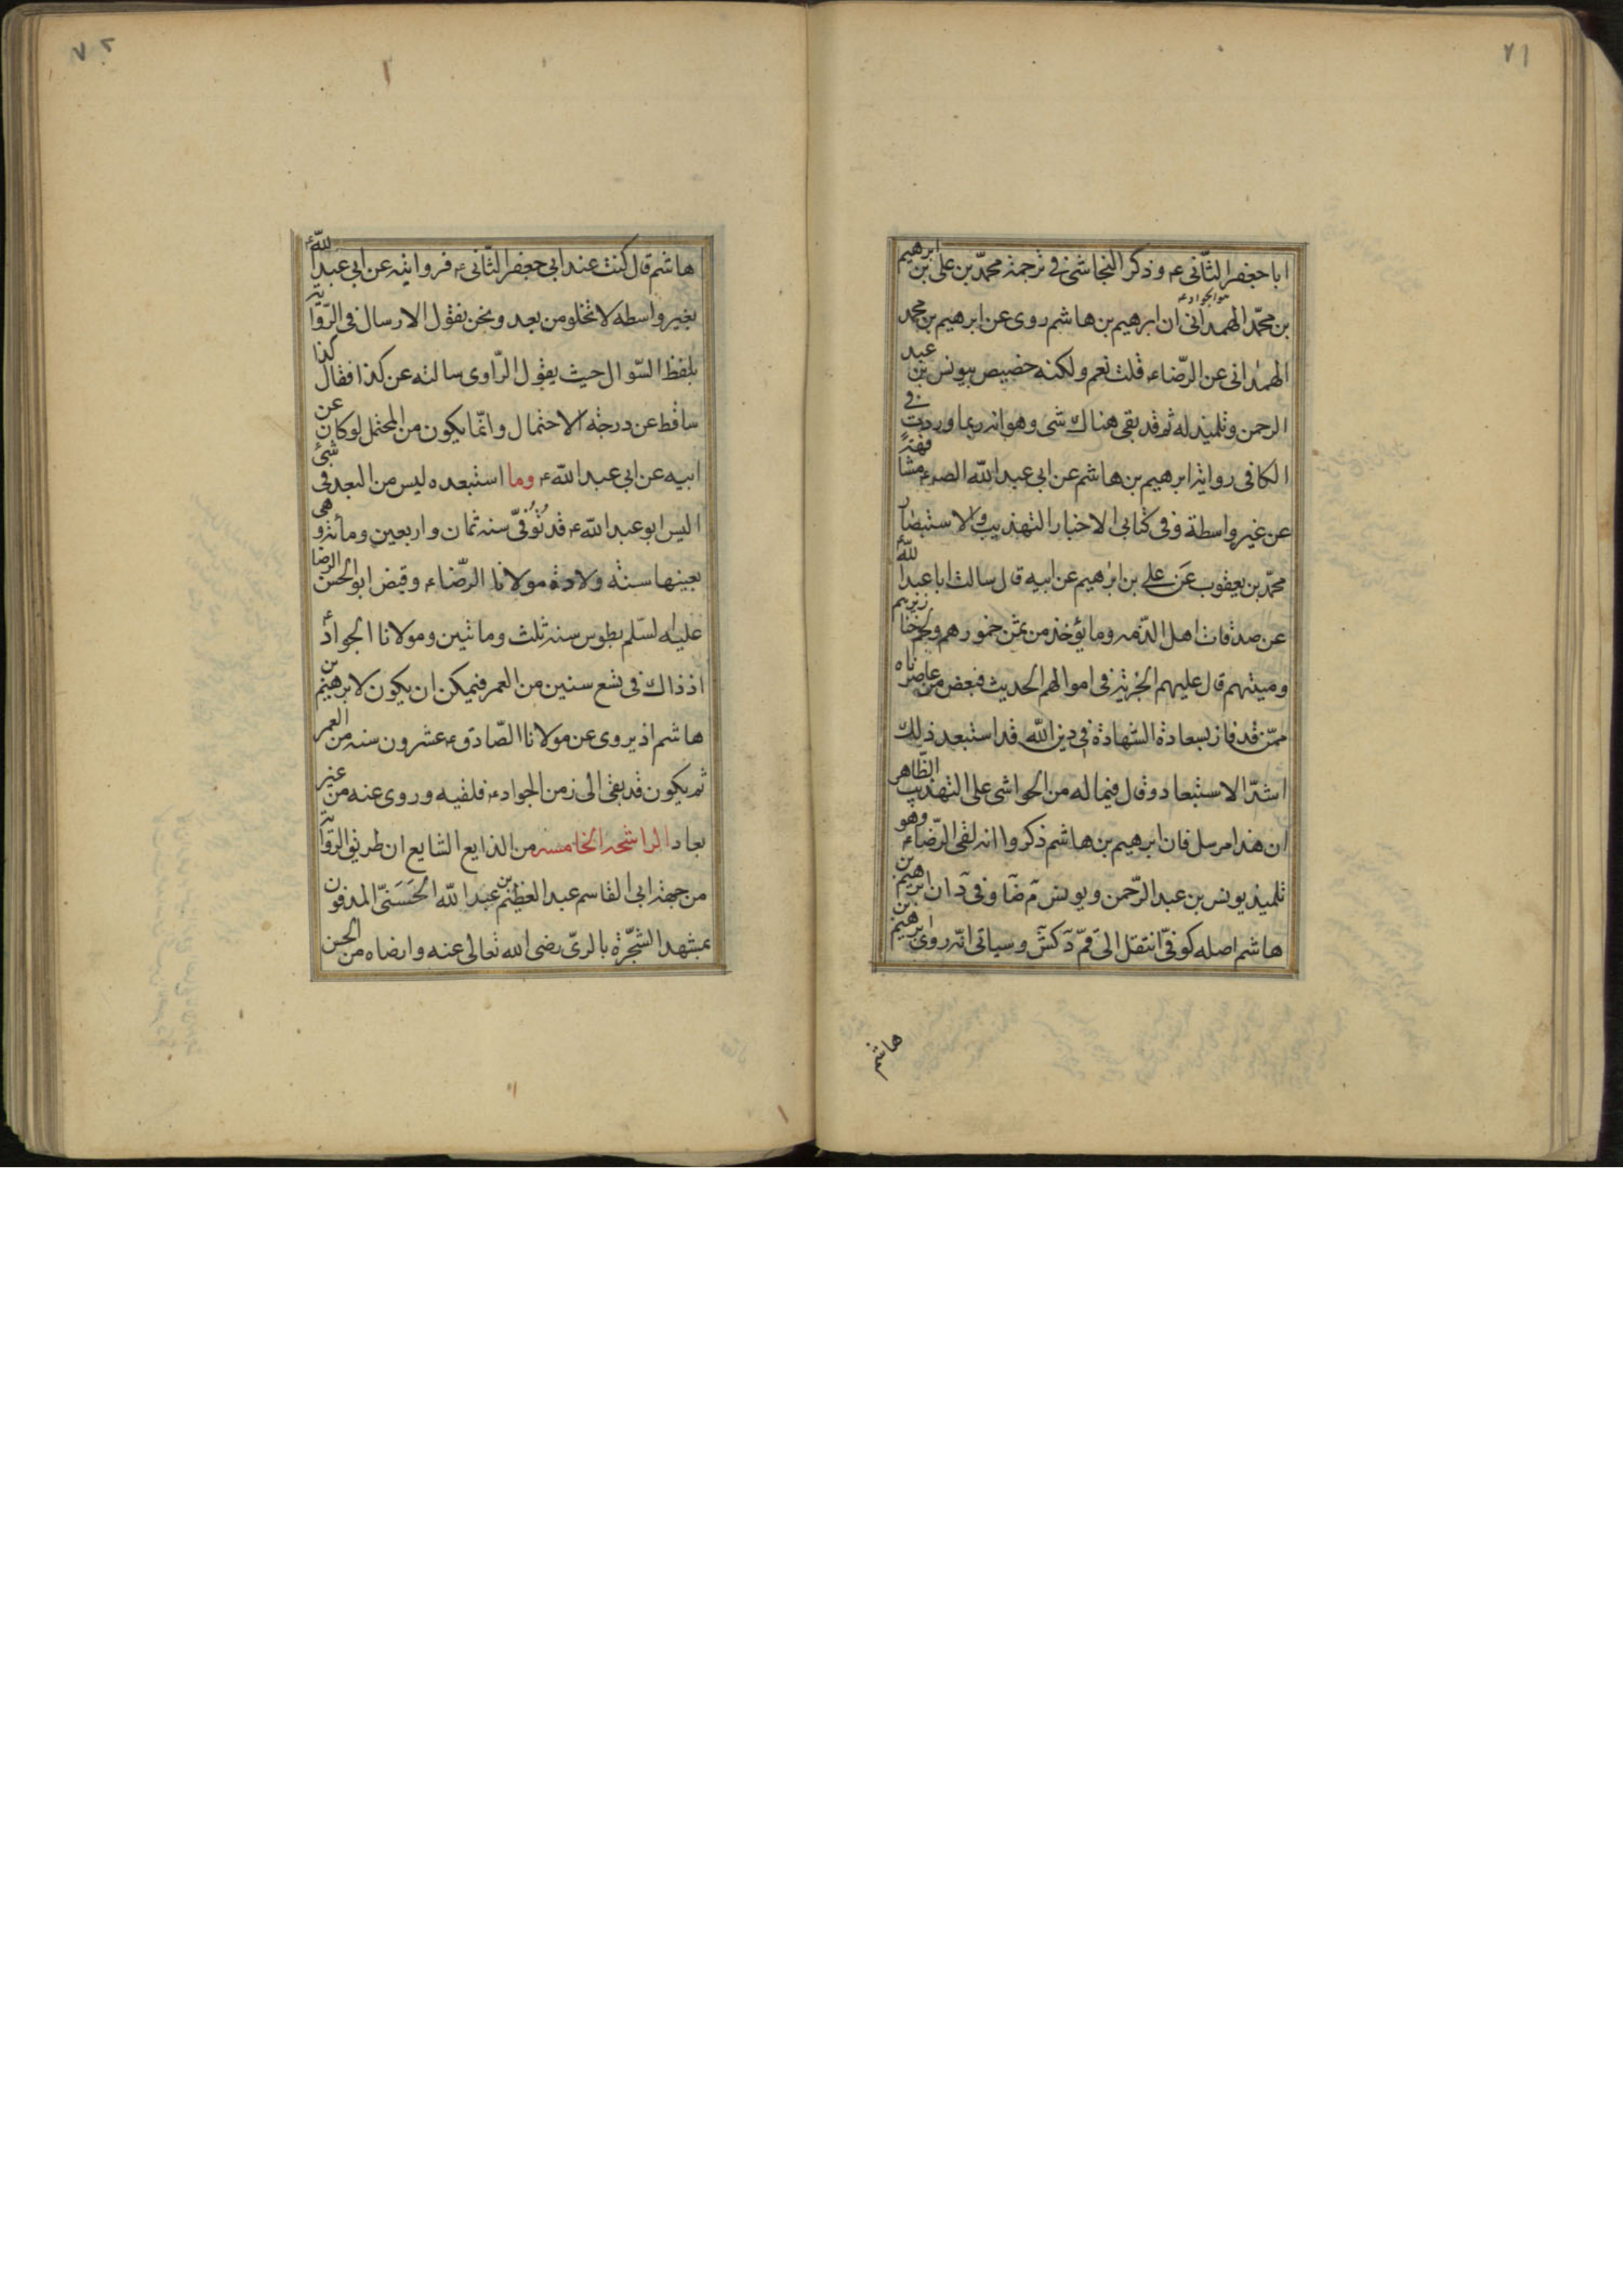 ٧١
ابا جعفر الثّانى ع و ذكر النجاشى فى ترجمة محمّد بن على بن ابرهيم
بن محمّد الهمدانى ان ابرهيم بن هاشم روى عن ابرهيم بن محمد
هو الجواد ع
الهمدانى عن الرّضا ع قلت نعم ولكنه خصيص بيونس بن عبد
الرحمن و تلميذ له ثم قد بقى هناك شى وهو انه ربما وردت فى
الكافى رواية ابرهيم بن هاشم عن ابى عبد الله الص ع مشافهة
عن غير واسطة و فى كتابى الاخبار التهذيب والاستبصار
محمّد بن يعقوب عن على بن ابرهيم عن ابيه قال سالت ابا عبد الله ع
عن صدقات اهل الذمه وما يؤخذ من ثمن خمورهم ولحم خنازيرهم
و ميتتهم قال عليهم الجزية فى اموالهم الحديث فبعض من عاصرناه
ممّن قد فاز بسعادة الشهادة فى دين الله قد استبعد ذلك
اشدّ الاستبعاد وقال فيما له من الحواشى على التهذيب الظّاهر
ان هذا مرسل فان ابرهيم بن هاشم ذكروا انه لقى الرّضاء ع وهو
تلميذ يونس بن عبد الرّحمن و يونس م ضا و فى د ان ابرهيم بن
هاشم اصله كوفىّ انتقل الى قمّ د كش و سياتى انّه روى ابرهيم بن
هاشم
٧٢
هاشم قال كنت عند ابى جعفر الثّانى ع فروايته عن ابى عبد الله ع
بغير واسطه لا تخلو من بعد و نحن نقول الارسال فى الرّواية
بلفظ السّوال حيث يقول الرّاوى سالته عن كذا فقال كذا
ساقط عن درجة الاحتمال و انّما يكون من المحتمل لو كان عن
ابيه عن ابى عبد الله ع وما استبعده ليس من البعد فى شئ
اليس ابو عبد الله ع قد تُوُفىّ سنه ثمان و اربعين و مائة و هى
بعينها سنة ولادة مولانا الرّضا ع و قبض ابو الحسن الرضا
عليه السّلم بطوس سنة ثلث و ماتين و مولانا الجواد ع
اذ ذاك فى تسع سنين من العمر فيمكن ان يكون لابرهيم بن
هاشم اذ يروى عن مولانا الصّادق ع عشرون سنه من العمر
ثم يكون قد بقى الى زمن الجواد ع فلقيه و روى عنه من غير
بعاد الراشحة الخامسة من الذايع الشايع ان طريق الرّواية
من جهة ابى القاسم عبد العظيم بن عبد الله الحَسَنىّ المدفون
بمشهد الشّجرة بالرىّ رضى الله تعالى عنه و ارضاه من الحسن